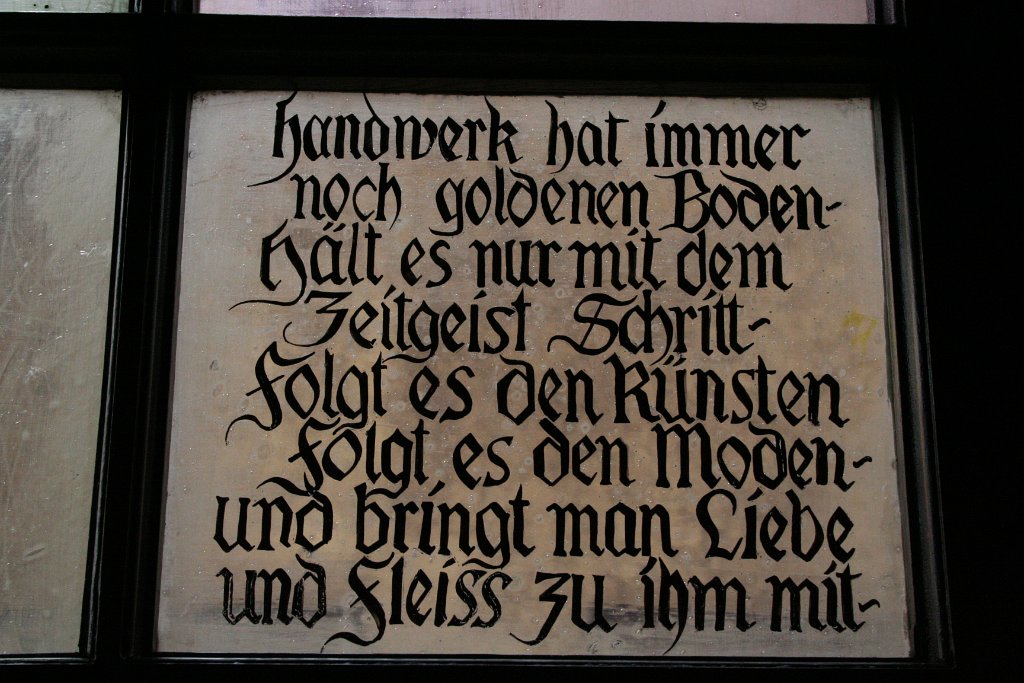 handwerk hat immer
noch goldenen Boden-
Hält es nur mit dem
Zeitgeist Schritt-
Folgt es den Künsten
folgt es den Moden-
und bringt man Liebe
und Fleiss zu ihm mit-